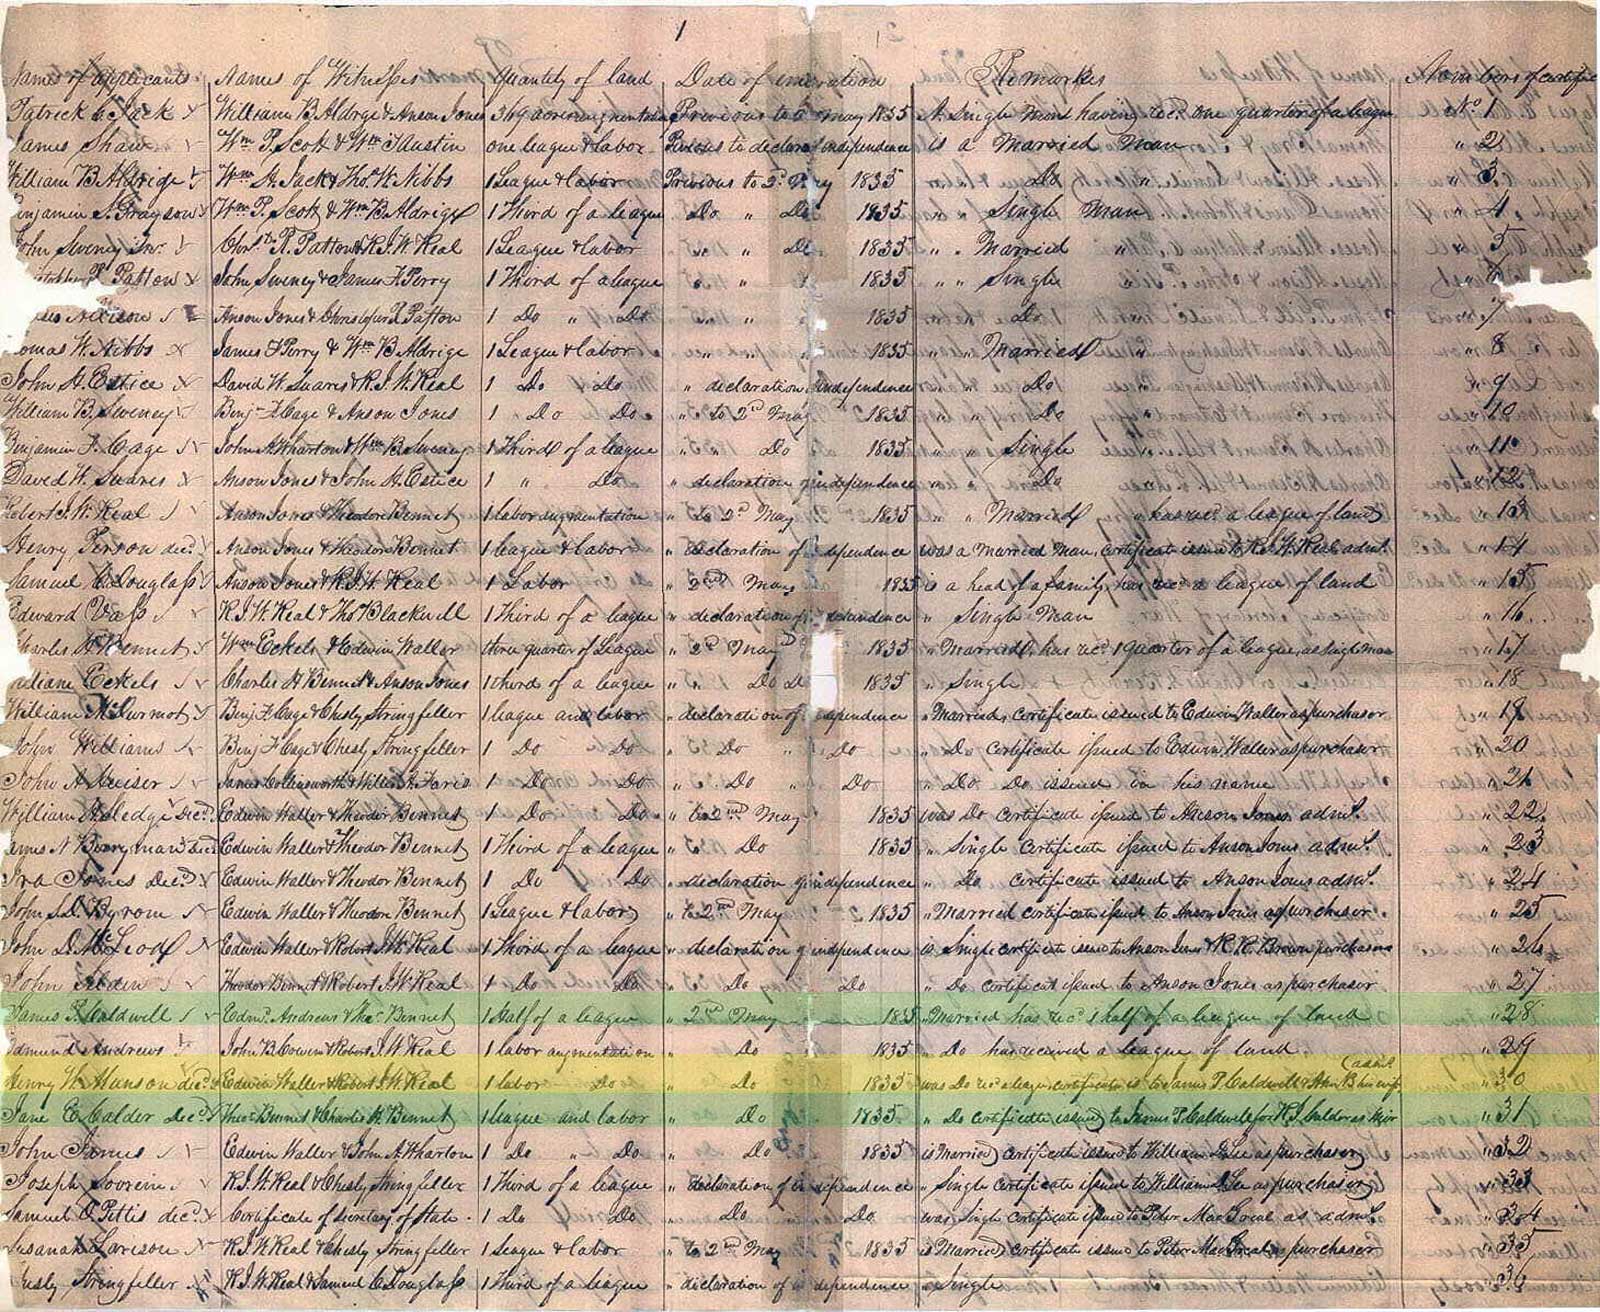 1
Names of applicants Names of Witnesses Quantity of land Date of emeration Remarkes Numbers of certific
Patrick C Jack William B Aldrge & Anson Jones 369 acres Previous to 2d May 1835 A Single Man having recd. one quarter of a league No. 1
James Shaw Wm. P. Scott & Wm. J Austin one league & labor Previous to declara independence is a Married Man " 2
William B. Aldrige Wm. H. Jack & Thos. W. Nibbs 1 League & labor Previous to 2d. May 1835 " " Do " " 3
enjamin S. Grayson Wm. P. Scott & Wm. B. Aldrige 1 Third of a league Do " Do 1835 " " Single Man " 4
John Sweney Chrs. R. Patton & R. J. W. Real 1 League & labor " " Do 1835 " " Married " " 5
Patton John Sweney & James F Perry 1 Third of a league " " 1835 " " Single " 6
Anson Jones & Christofur R Patton 1 Do " Do " " 1835 " Do " 7
omas W. Nibbs James F Perry & Wm. B. Aldrige 1 League & labor " " " 1835 " " Married " " 8
John H. Estice David W. Suares & R. J. W. Real 1 Do Do " declaration independence " Do " 9
William B. Sweney Benj. F Cage & Anson Jones 1 Do Do " to 2nd May 1835 " " Do " " 10
Benjamin F. Cage John A Wharton & Wm. B. Sweney 1 Third of a league " " Do 1835 " " Single " 11
David W. Suares Anson Jones & John H. Estice 1 " Do " declaration of independence " " Do " 12
Robert J. W. Real Anson Jones & Theodore Bennet 1 labor augmentation " to 2d May 1835 " " Married " has recd. a league of land " 13
Henry Person decd. Anson Jones & Theodore Bennet 1 league & labor " declaration of independence was a Married Man, certificate issued to R. J. W. Real admr. " 14
Samuel C. Douglass Anson Jones & R. J. W. Real 1 Labor " 2nd May 1835 is a head of a family, has recd a league of land " 15
Edward Vass R. J. W. Real & Thos. Blackwell 1 Third of a league " declaration of independence " Single Man " 16
Charles H. Bennet Wm. Eckels & Edwin Waller three quarter of League " 2d May 1835 " Married, has recd. 1 quarter of a league, as single Man " 17
Williane Eckels Charles H Bennet & Anson Jones 1 third of a league " " Do 1835 " Single " 18
William McDurmot Benj. F Cage & Chesly Stringfeller 1 league and labor " declaration of independence " Married, certificate issued to Edwin Waller as purchaser " 19
John Williams Benj F Cage & Chesly Stringfeller 1 Do Do " Do " Do " Do certificate issued to Edwin Waller as purchaser " 20
John A James Collinsworth & Willis A Faris 1 Do Do " Do " Do " Do Do issued in his name " 21
William H. Sledge Decd. Edwin Waller & Theodor Bennet 1 Do Do " to 2nd May 1835 was Do certificate issued to Anson Jones admr. " 22
James N Berryman decd Edwin Waller & Theodor Bennet 1 Third of a league " to Do 1835 " Single Certificate issued to Anson Jones admr. " 23
Ira Jones Decd. Edwin Waller & Theodor Bennet 1 Do Do " declaration of independence " Do certificate issued to Anson Jones admr. " 24
John S.D. Byrom Edwin Waller & Theodore Bennet 1 League & labor " to 2nd May 1835 " Married certificate issued to Anson Jones as purchaser " 25
John D. McLeod Edwin Waller & Robert J. W. Real 1 third of a league " declaration of independence is Single certificate issued to Anson Jones & R. R. Brown purchasers " 26
John Theodor Bennet & Robert J. W. Real 1 Do Do " Do Do " Do certificate issued to Anson Jones as purchaser " 27
James P. Caldwell Edmd. Andrews & Theo Bennet 1 Half of a league " 2nd May 1835 " Married has recd. 1 half of a league of land " 28
Edmund Andrews John B. Cowen & Robert J. W. Real 1 labor augmentation " Do 1835 " Do has received a league of land " 29
Henry W. Munson decd. Edwin Waller & Robert J. W. Real 1 labor Do " Do 1835 was Do recd a league, certificate is to James P. Caldwell & Ann B his wife (admr. " 30
Jane E. Calder Decd. Theor. Bennet & Charles H. Bennet 1 league and labor " Do 1835 " Do certificate issued to James P Caldwell for R. J. Calder as Heir " 31
John James Edwin Waller & John A. Wharton 1 Do " Do " Do 1835 is Married certificate issued to William D. Lee as purchaser " 32
Joseph R. J. W. Real & Chesly Stringfeller 1 Third of a league " declaration of independence " Single certificate issued to William D. Lee as purchaser " 33
Samuel O. Pettis decd. Certificate of Secretary of State 1 Do Do " Do Do was Single Certificate issued to Peter MacGreal as admr. " 34
Susanah Larison R. J. W. Real & Chesly Stringfeller 1 League & labor " to 2nd May 1835 is Married certificate issued to Peter MacGreal as purchaser " 35
hesly Stringfeller R. J. W. Real & Samuel C. Douglass 1 Third of a league " declaration of independence " Single " 36